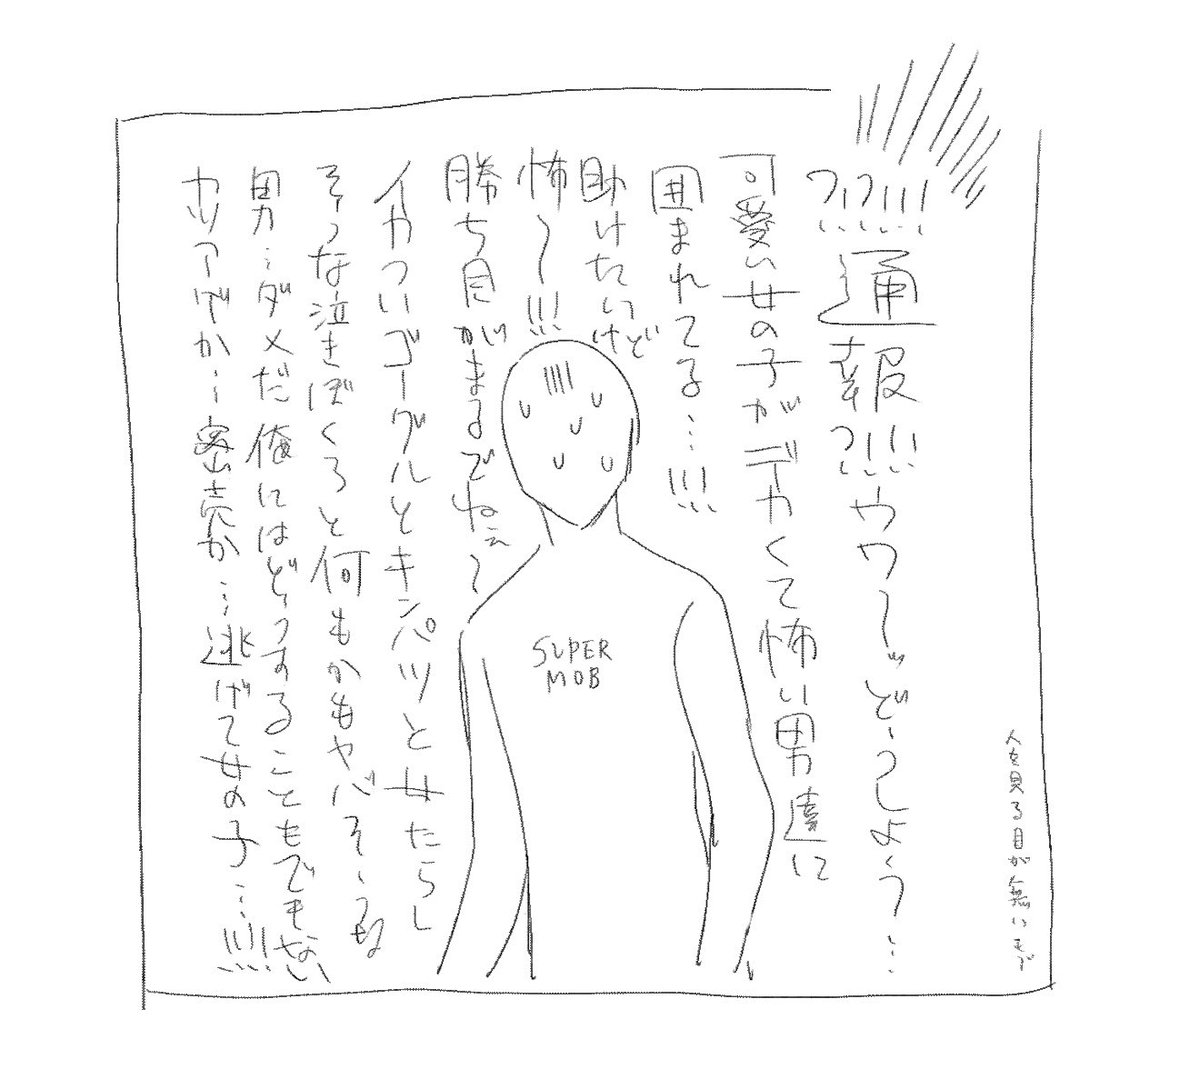 ?!?!!!通報?!!!ウワーッどーしよう…
可愛い女の子がデカくて怖い男達に
囲まれてる…!!!
助けたいけど
怖〜!!!
勝ち目がまるでねぇ〜
イカついゴーグルとキンパツと女たらし
そうな泣きぼくろと何もかもヤバそーな
男…ダメだ俺にはどうすることもできない
カツアゲか…密売か…逃げて女の子…!!!!
SUPER
MOB
人を見る目が無いモブ